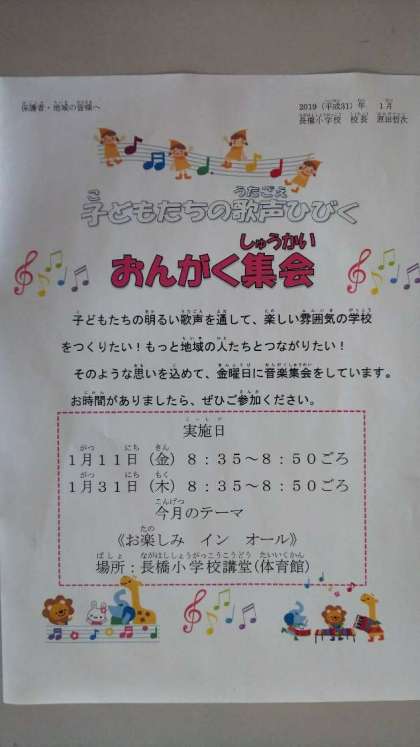 保護者・地域の皆様へ
2019（平成31）年　1月
長橋小学校　校長
子どもたちの歌声ひびく
おんがく集会
子どもたちの明るい歌声を通して、楽しい雰囲気の学校
をつくりたい！もっと地域の人たちとつながりたい！
そのような思いを込めて、金曜日に音楽集会をしています。
お時間がありましたら、ぜひご参加ください。
実施日
1月11日（金）8：35～8：50ごろ
1月31日（木）8：35～8：50ごろ
今月のテーマ
《お楽しみ　イン　オール》
場所：長橋小学校講堂(体育館)